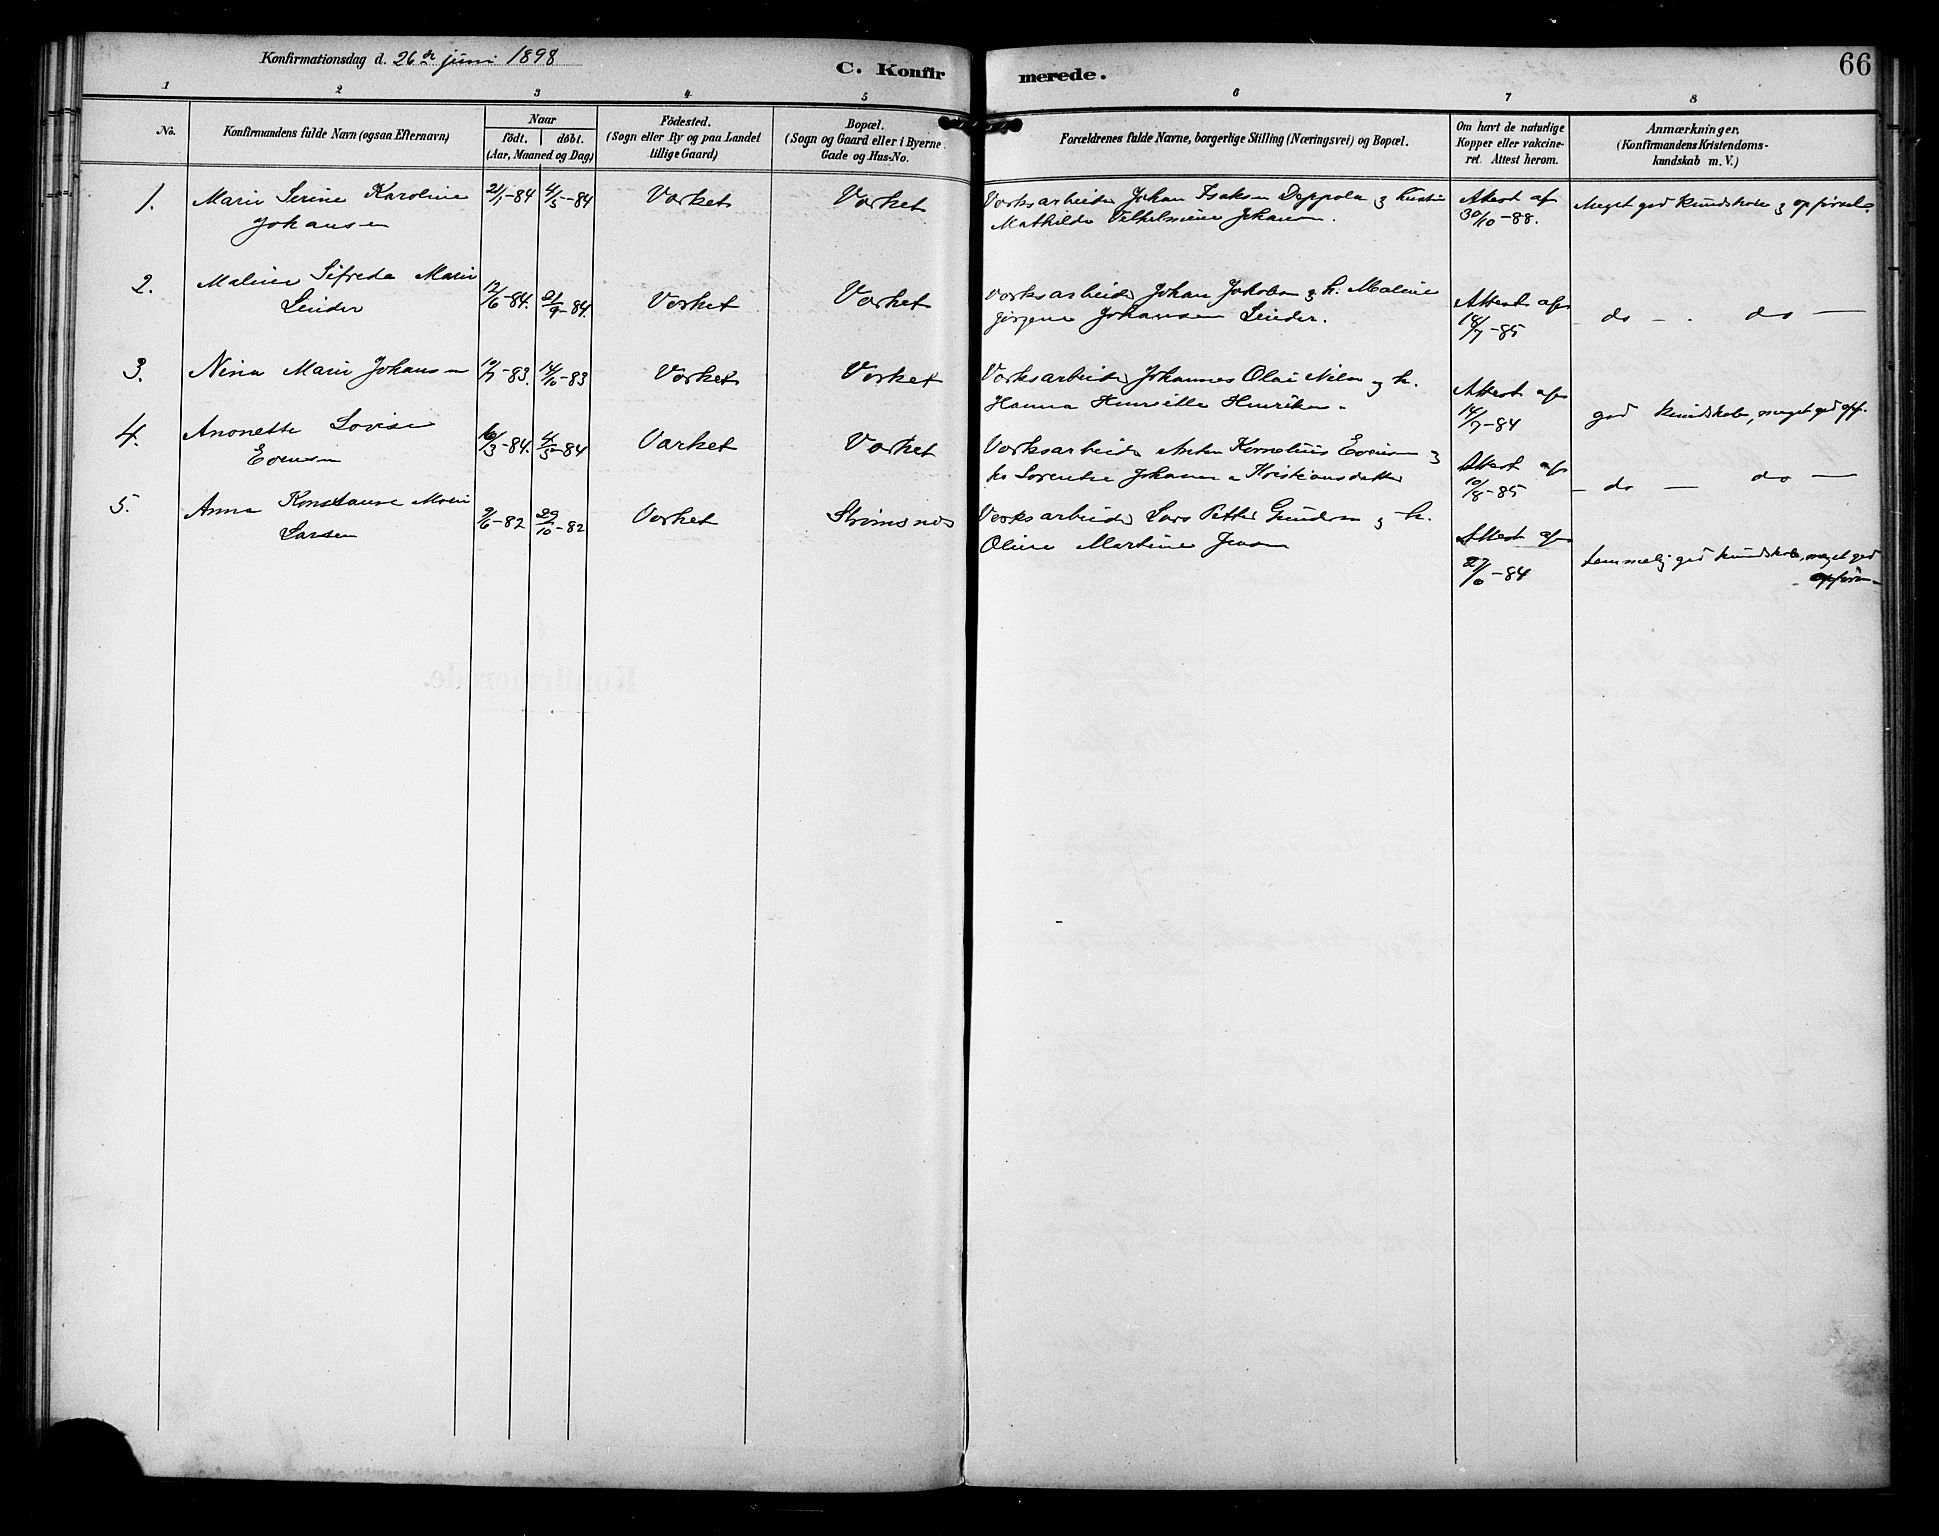 Konfirmationsdag d. 26de juni 1898
C. Konfirmerede.
66
1 2 3 4 5 6 7 8
No.
Konfirmandens fulde Navn (ogsaa Efternavn)
Naar
födt. döbt.
(Aar, Maaned og Dag)
Födested.
(Sogn eller By og paa Landet
tillige Gaard)
Bopæl.
(Sogn og Gaard eller i Byerne
Gade og Hus-No.
Forældrenes fulde Navne, borgerlige Stilling (Næringsvei) og Bopæl.
Om havt de naturlige
Kopper eller vakcine-
ret. Attest herom.
Anmærkninger.
(Konfirmandens Kristendoms-
kundskab m. V.)
1. Marie Serine Karoline 21/1-84 4/5-84 Værket Værket Værksarbeider Johan Isaksen Deppola og hustru Attest af Meget god kundskab og opførsel.
Johansen Mathilde Vilhelmine Johansen. 30/10-88.
2. Maline Sifreda Marie 12/6-84. 21/9-84. Værket Værket Værksarbeider Johan Jakobsen og h. Maline Attest af
Leinder Jörgene Johansen Leinder. 18/7-85 - do - . do -
3. Nina Marie Johansen -83. 14/10-83 Værket Værket Værksarbeider Johannes Olai Nilsen og h. Attest af
Hanna Henriette Henriksen 14/7-84 god kundskab, meget god opf.
4. Anonette Lovise 16/3-84. 4/5-84 Værket Værket Værksarbeider Anton Kornelius Evensen og Attest af
Evensen h. Lorentse Johanna Kristiansdatter 10/8-85 - do - do -
5. Anna Konstanse Marie 9/6-82 29/10-82 Værket Strömsnes Værksarbeider Lars Petter Gundersen og h. Attest af
Larsen Oline Martine Jensen 27/10-84 temmelig god kundskab, meget god
opförsel
Konfirmerede.